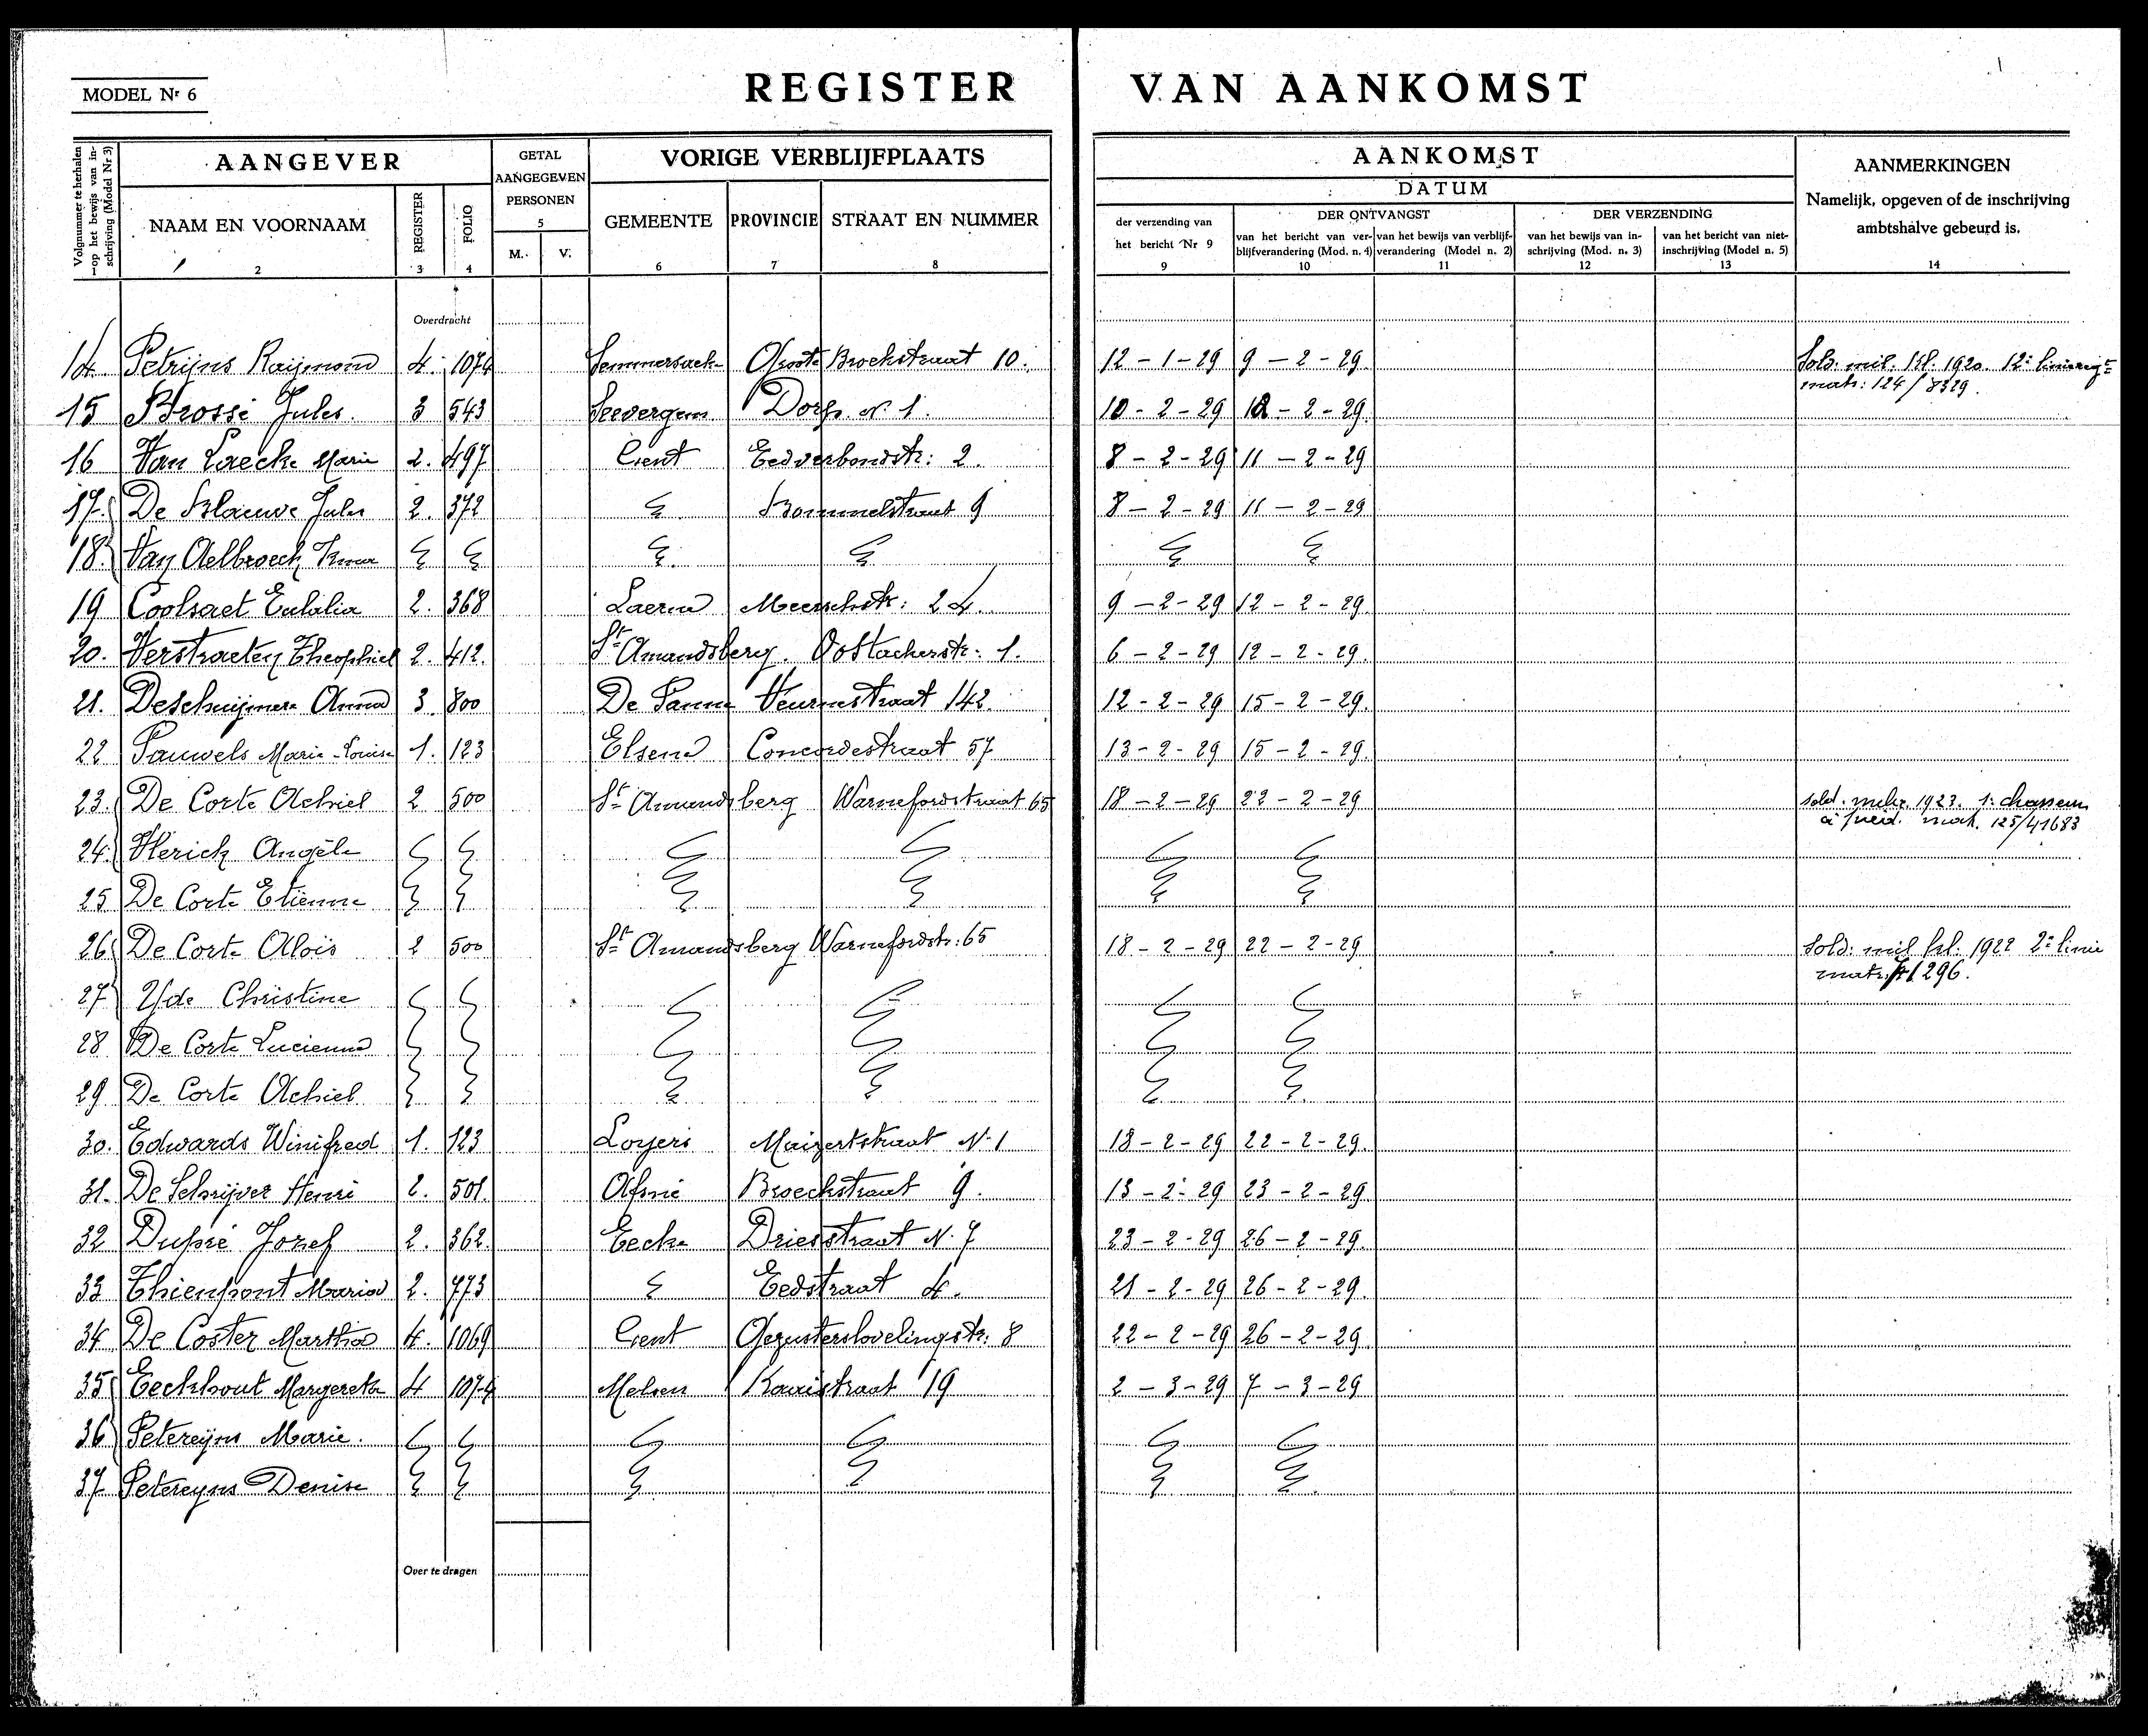 REGISTER VAN AANKOMST
MODEL Nr 6
Volgnummer te herhalen op het bewijs van inschrijving (Model Nr 3)
AANGEVER
NAAM EN VOORNAAM
2
REGISTER
3
FOLIO
4
GETAL
AANGEGEVEN
PERSONEN
5
M. V.
VORIGE VERBLIJFPLAATS
GEMEENTE PROVINCIE STRAAT EN NUMMER
6 7 8
AANKOMST
DATUM
der verzending van
het bericht Nr 9
9
DER ONTVANGST
van het bericht van verblijfverandering (Mod. n. 4)
10
van het bewijs van verblijfverandering (Model n. 2)
11
DER VERZENDING
van het bewijs van inschrijving (Mod. n. 3)
12
van het bericht van niet-inschrijving (Model n. 5)
13
AANMERKINGEN
Namelijk, opgeven of de inschrijving
ambtshalve gebeurd is.
14
Overdracht
14 Petrijns Raijmond 4. 1074 Semmersack Groote Broekstraat 10. 12-1-29 9-2-29 Sold. mil. kl. 1920. 12e
matr: 124/8329.
15 Brossé Jules. 3 543 Seevergem Dorp. N. 1. 10-2-29 12-2-29.
16 Van Laecke Marie 2. 497 Gent Eedverbondstr: 2. 8-2-29 11-2-29
17. De Blauwe Jules 2. 372 Bommelstraat 9 8-2-29 11-2-29
18. Van Aelbroeck Irma
19 Coolsaet Eulalia 2. 368 Laerne Meerschstr: 24. 9-2-29 12-2-29.
20. Verstraeten Theophiel 2. 412. St Amandsberg. Oostackerstr: 1. 6-2-29 12-2-29.
21. Deschuijmere Anna 3. 800 De Panne Veurnestraat 142. 12-2-29 15-2-29.
22 Pauwels Marie-Louise 1. 123 Elsene Concordestraat 57 13-2-29 15-2-29.
23. De Corte Achiel 2 500 St Amandsberg Warnefordstraat 65 18-2-29 22-2-29 sold. 1923. 1e chasseurs
à pied. mat. 125/41683
24. Herick Angèle
25 De Corte Etienne
26 De Corte Aloïs 2 500 St Amandsberg Warnefordstr: 65 18-2-29 22-2-29 Sold: mil kl. 1922 2e linie
matr. 1296.
27 Christine
28 De Corte Lucienne
29 De Corte Achiel
30. Edwards Winifred 1. 123 Loyers Maizertstraat N. 1 18-2-29 22-2-29.
31. De Schrijver Henri 2. 501. Afsné Broeckstraat 9. 13-2-29 23-2-29.
32 Dupré Jozef 2. 362. Eecke Driesstraat N. 7 23-2-29 26-2-29.
33 Thienpont Maria 2. 773 Eedstraat 4. 21-2-29 26-2-29.
34 De Coster Martha 4. 1069 Gent Gezusterslovelingstr: 8 22-2-29 26-2-29
35 Eeckhout Margereta 4 1074 Melsen straat 19 2-3-29 7-3-29
36 Petereijns Marie.
37 Petereyns Denise
Over te dragen